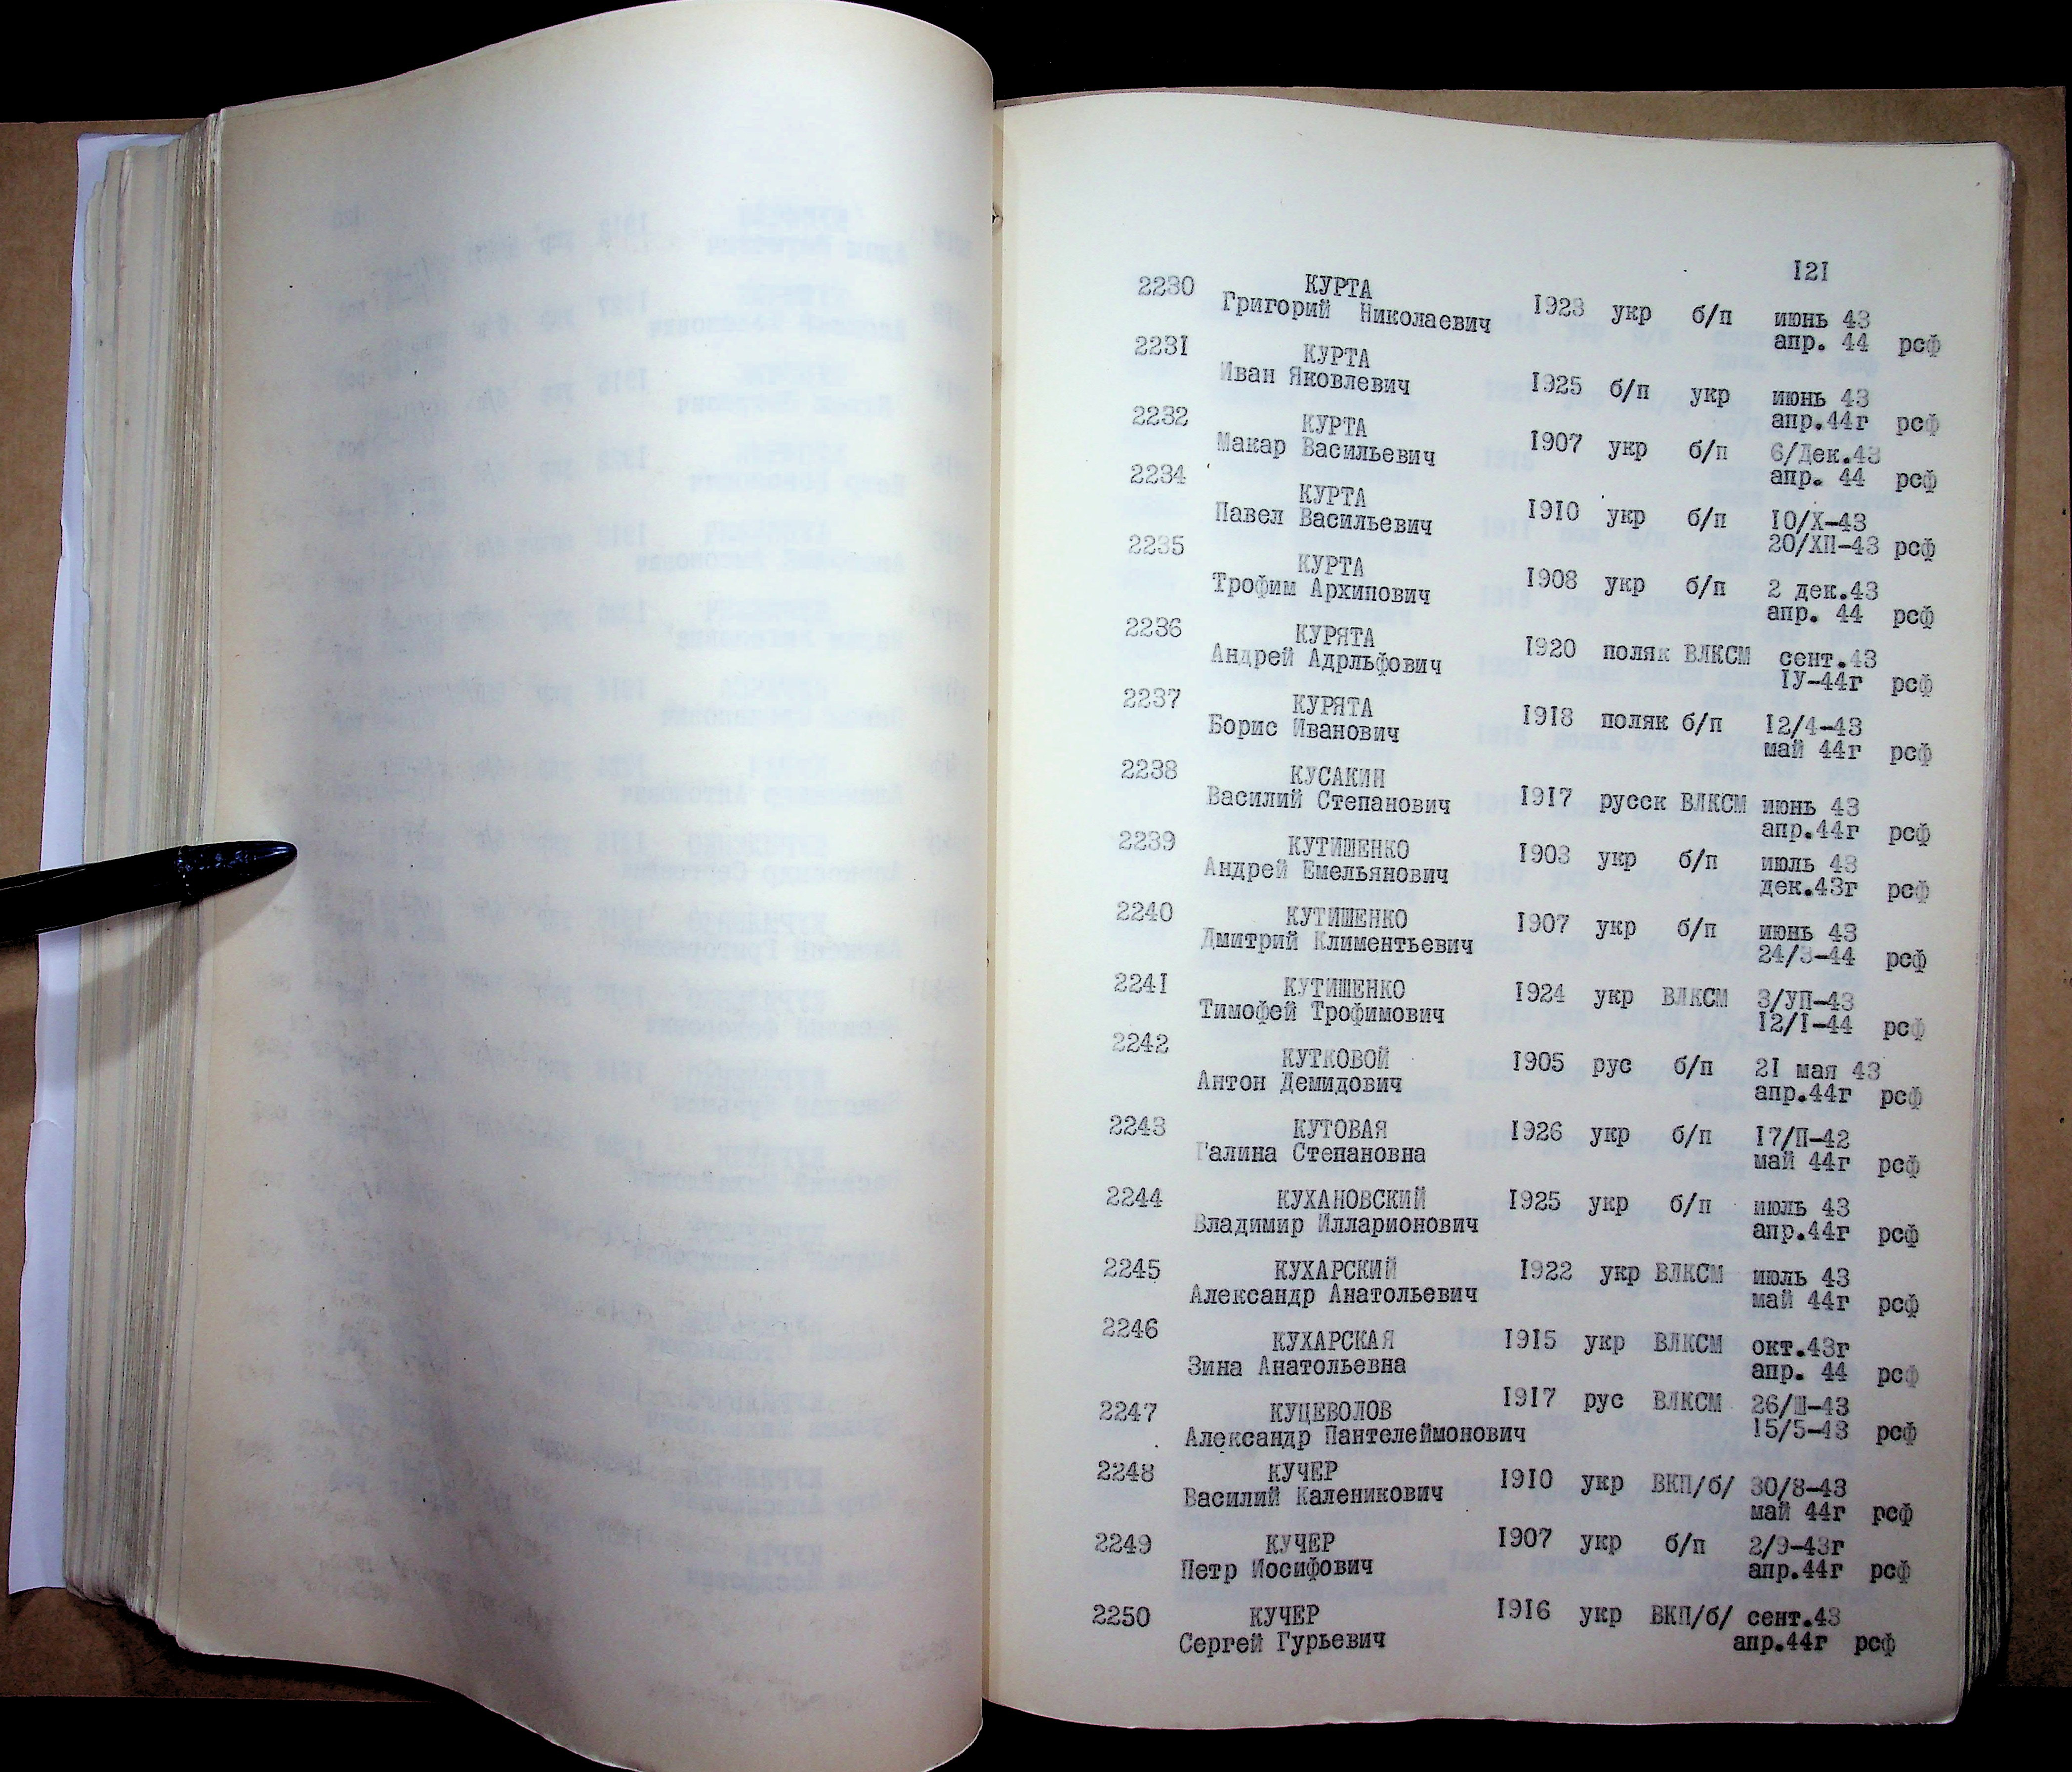 I2I
2230 КУРТА
Григорий Николаевич I923 укр б/п июнь 43
апр. 44 рсф
223I КУРТА
Иван Яковлевич I925 б/п укр июнь 43
апр.44г рсф
2232 КУРТА
Макар Васильевич I907 укр б/п 6/Дек.43
апр. 44 рсф
2234 КУРТА
Павел Васильевич I9I0 укр б/п I0/X-43
20/ХП-43 рсф
2235 КУРТА
Трофим Архипович I908 укр б/п 2 дек.43
апр. 44 рсф
2236 КУРЯТА
Андрей Адрльфович I920 поляк ВЛКСМ сент.43
IУ-44г рсф
2237 КУРЯТА
Борис Иванович I918 поляк б/п I2/4-43
май 44г рсф
2238 КУСАКИН
Василий Степанович I9I7 русск ВЛКСМ июнь 43
апр.44г рсф
2239 КУТИШЕНКО
Андрей Емельянович I903 укр б/п июль 43
дек.43г рсф
2240 КУТИШЕНКО
Дмитрий Климентьевич I907 укр б/п июнь 43
24/3-44 рсф
224I КУТИШЕНКО
Тимофей Трофимович I924 укр ВЛКСМ 3/УП-43
I2/I-44 рсф
2242 КУТКОВОЙ
Антон Демидович I905 рус б/п 2I мая 43
апр.44г рсф
2243 КУТОВАЯ
Галина Степановна I926 укр б/п I7/П-42
май 44г рсф
2244 КУХАНОВСКИЙ
Владимир Илларионович I925 укр б/п июль 43
апр.44г рсф
2245 КУХАРСКИЙ
Александр Анатольевич I922 укр ВЛКСМ июль 43
май 44г рсф
2246 КУХАРСКАЯ
Зина Анатольевна I9I5 укр ВЛКСМ окт.43г
апр. 44 рсф
2247 КУЦЕВОЛОВ
Александр Пантелеймонович I9I7 рус ВЛКСМ 26/Ш-43
I5/5-43 рсф
2248 КУЧЕР
Василий Каленикович I9I0 укр ВКП/б/ 30/8-43
май 44г рсф
2249 КУЧЕР
Петр Иосифович I907 укр б/п 2/9-43г
апр.44г рсф
2250 КУЧЕР
Сергей Гурьевич I9I6 укр ВКП/б/ сент.43
апр.44г рсф